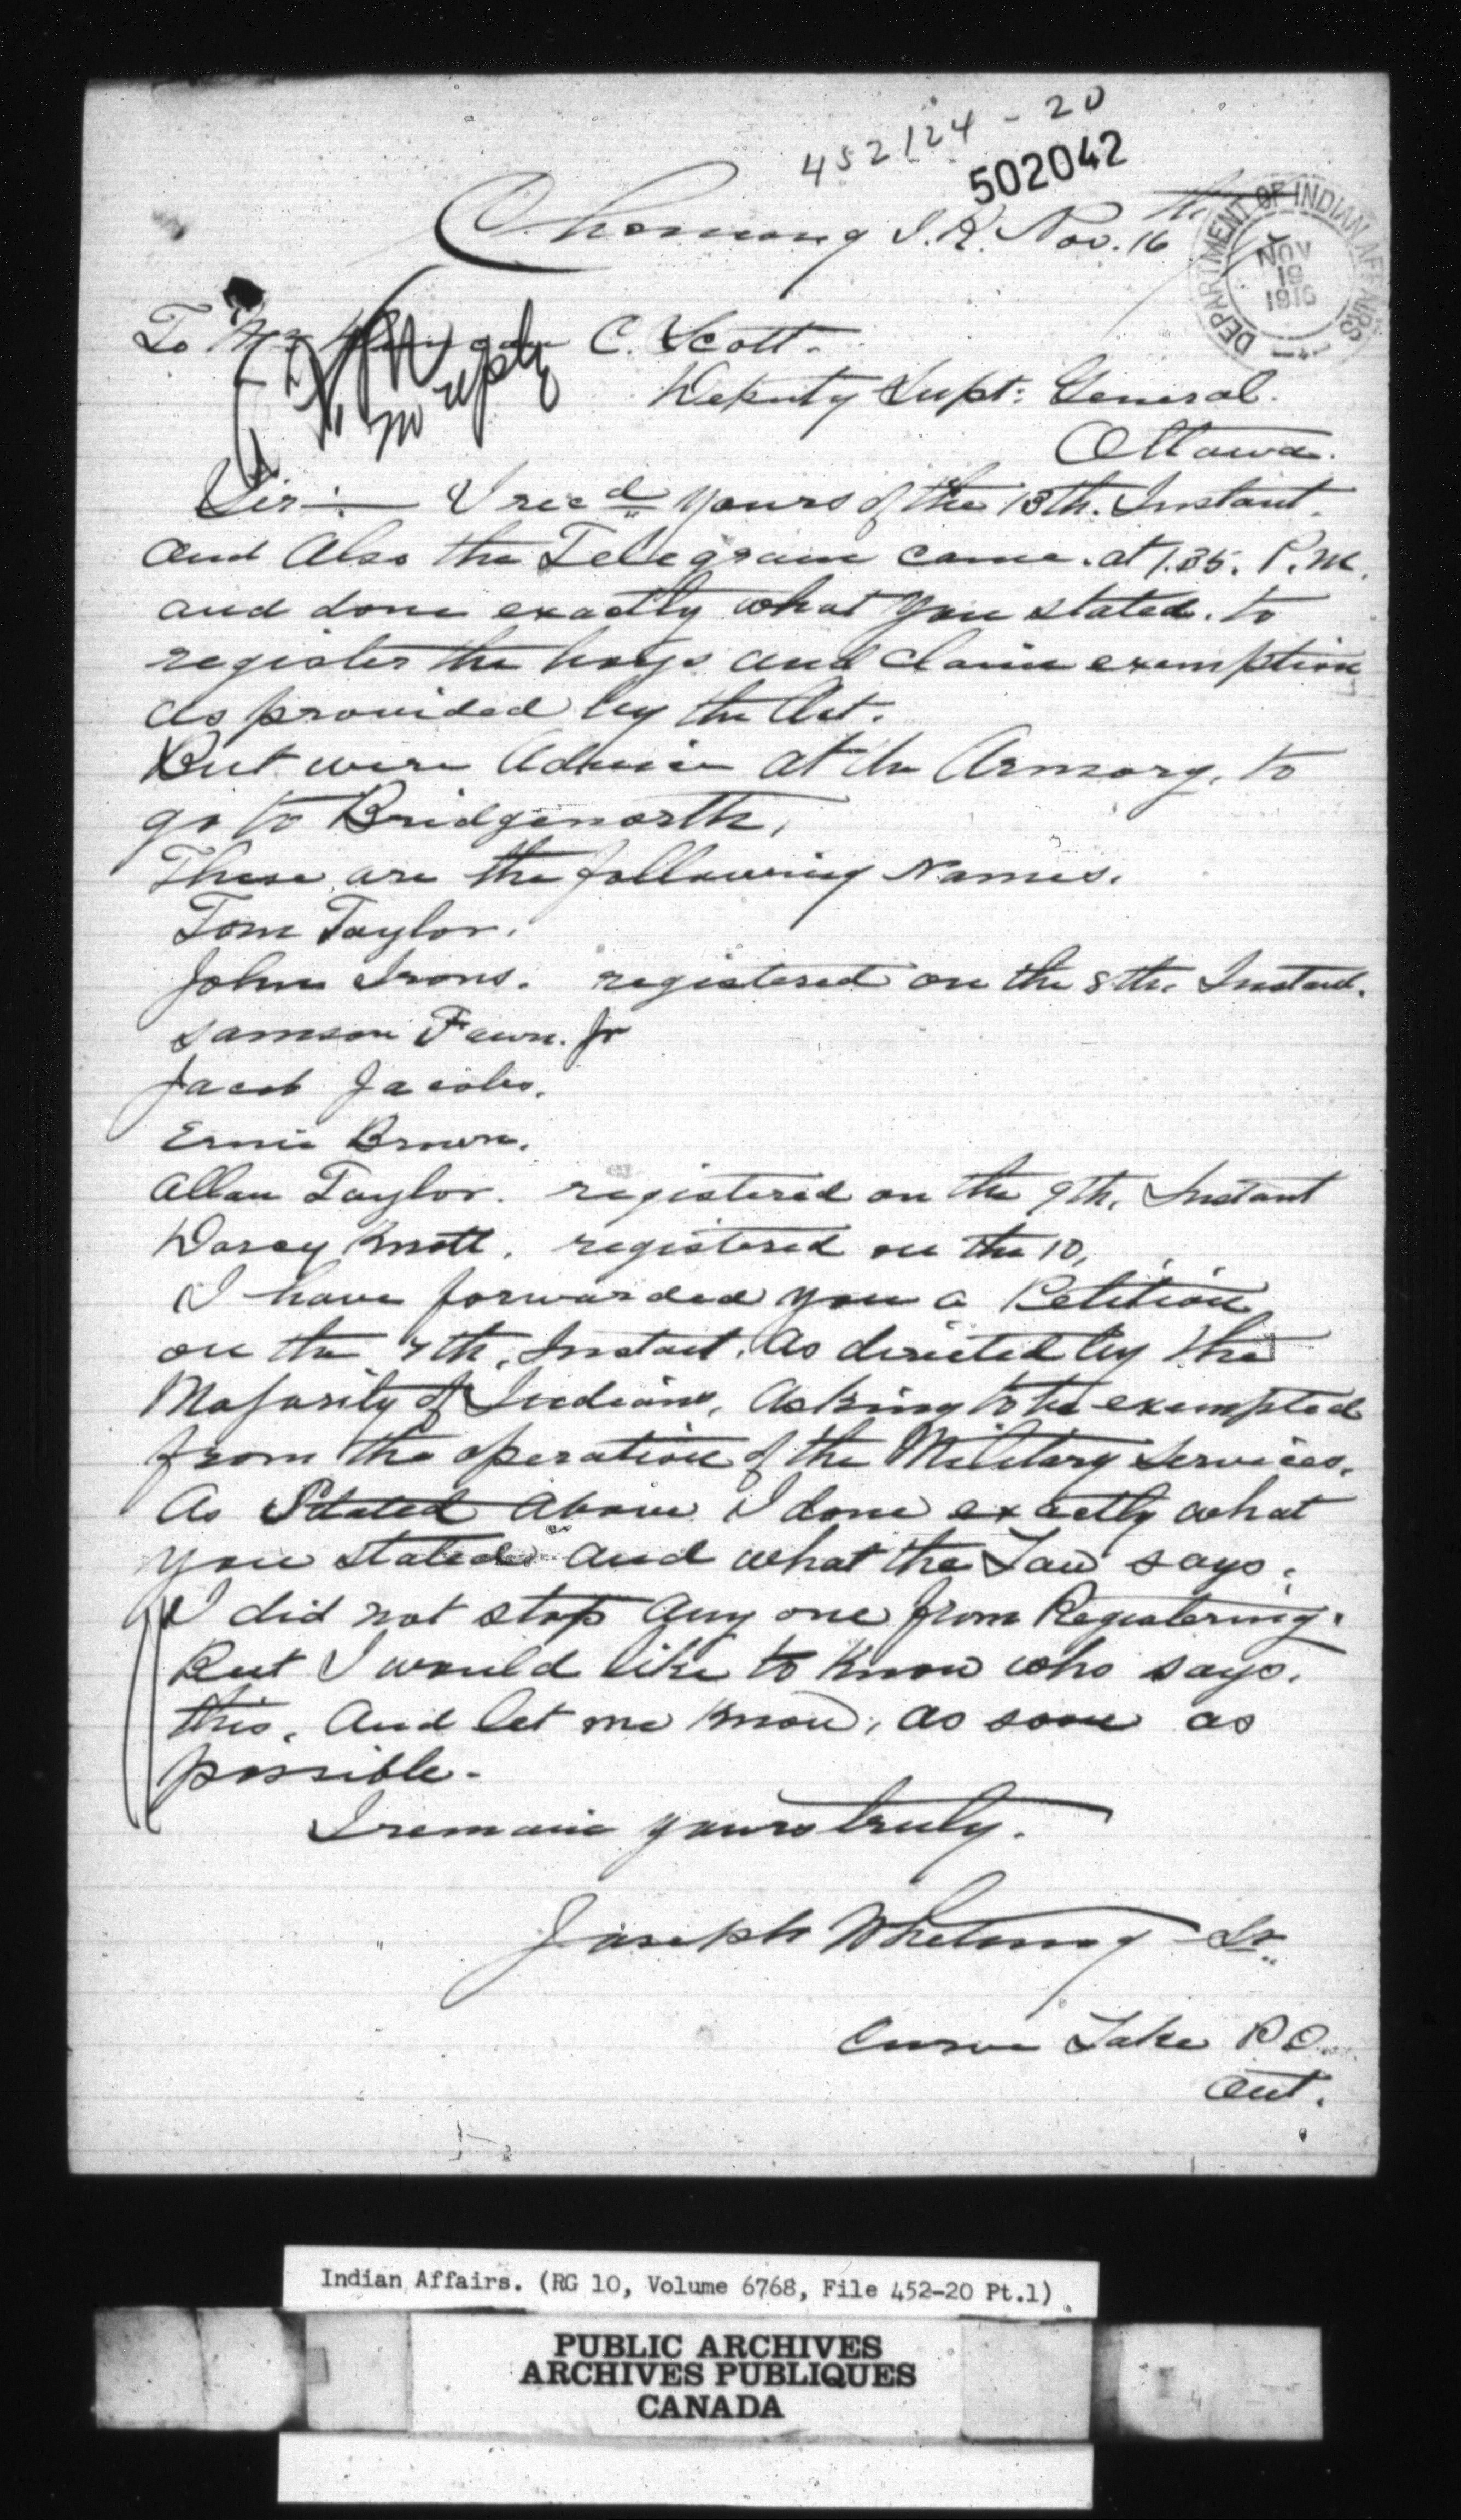 452124-20
502042
Chemong I.R. Nov. 16th
DEPARTMENT OF INDIAN AFFAIRS
NOV
19
1916
To Mr C. Scott.
no reply
Deputy Supt: General.
Ottawa.
Sir:— I rec'd yours of the 13th. Instant.
and Also the Telegram came. at 1.35. P.M.
and done exactly what you stated. to
register the boys and claim exemption
as provided by the Act.
But were Advise at the Armory, to
go to Bridgenorth,
These are the following Names.
Tom Taylor.
John Irons. registered on the 8th. Instant.
Samson Fawn. Jr
Jacob Jacobs.
Ernie Brown.
Allan Taylor. registered on the 9th. Instant
Darcy Knott. registered on the 10,
I have forwarded you a Petition
on the 7th. Instant. As directed by the
Majority of Indians, Asking to be exempted
from the operation of the Military Services.
As Stated above I done exactly what
you stated and what the Law says.
I did not stop any one from Registering.
But I would like to know who says.
this. And let me know, as soon as
possible.
I remain yours truly.
Joseph Whetung Sr.
Curve Lake P.O.
Ont.
Indian Affairs. (RG 10, Volume 6768, File 452-20 Pt.1)
PUBLIC ARCHIVES
ARCHIVES PUBLIQUES
CANADA